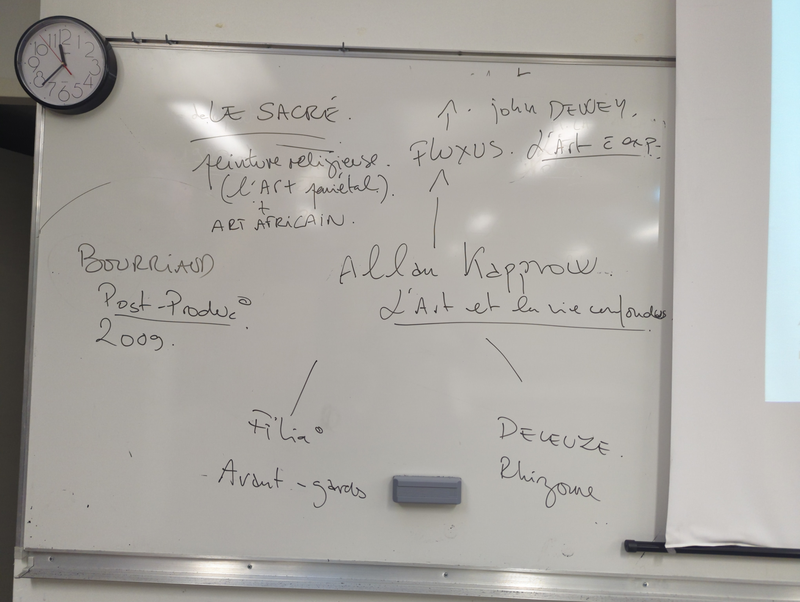 LE SACRÉ.
peinture religieuse.
(l'Art pariétal).
+
ART AFRICAIN.
↑ . john DEWEY...
FLUXUS. L'Art E exp.
↑
BOURRIAUD
Post-Produc°.
2009.
Allan Kaprow...
L'Art et la vie confondus
Filia°
- Avant-gardes
DELEUZE.
Rhizome
12
1
2
3
4
5
6
7
8
9
10
11